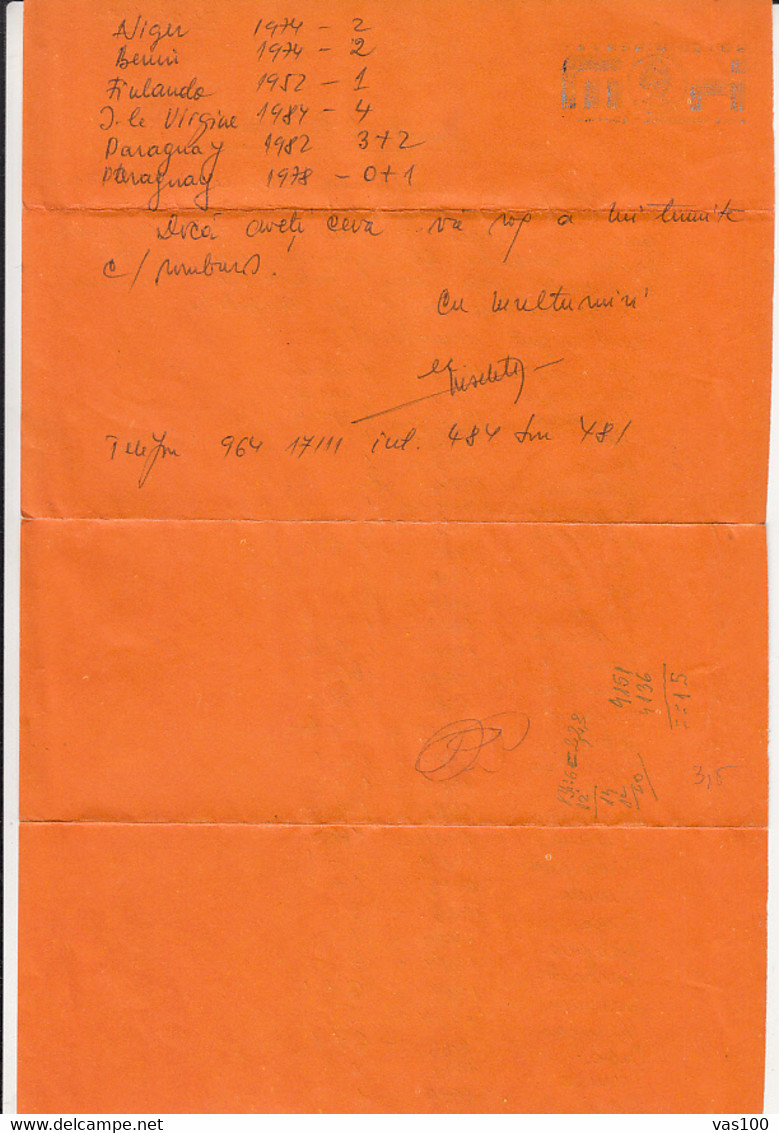 Niger 1974 - 2
Benin 1974 - 2
Finlanda 1952 - 1
I-le Virgine 1984 - 4
Paraguay 1982 3+2
Paraguay 1978 - 0+1
Dacă aveți ceva vă rog a mi trimite
c/ ramburs.
Cu mulțumiri
Telefon 964 17111 int. 484 sau 481
9151
9136
==15
14:6=2,3
12
14
12
20
3,5
vas100